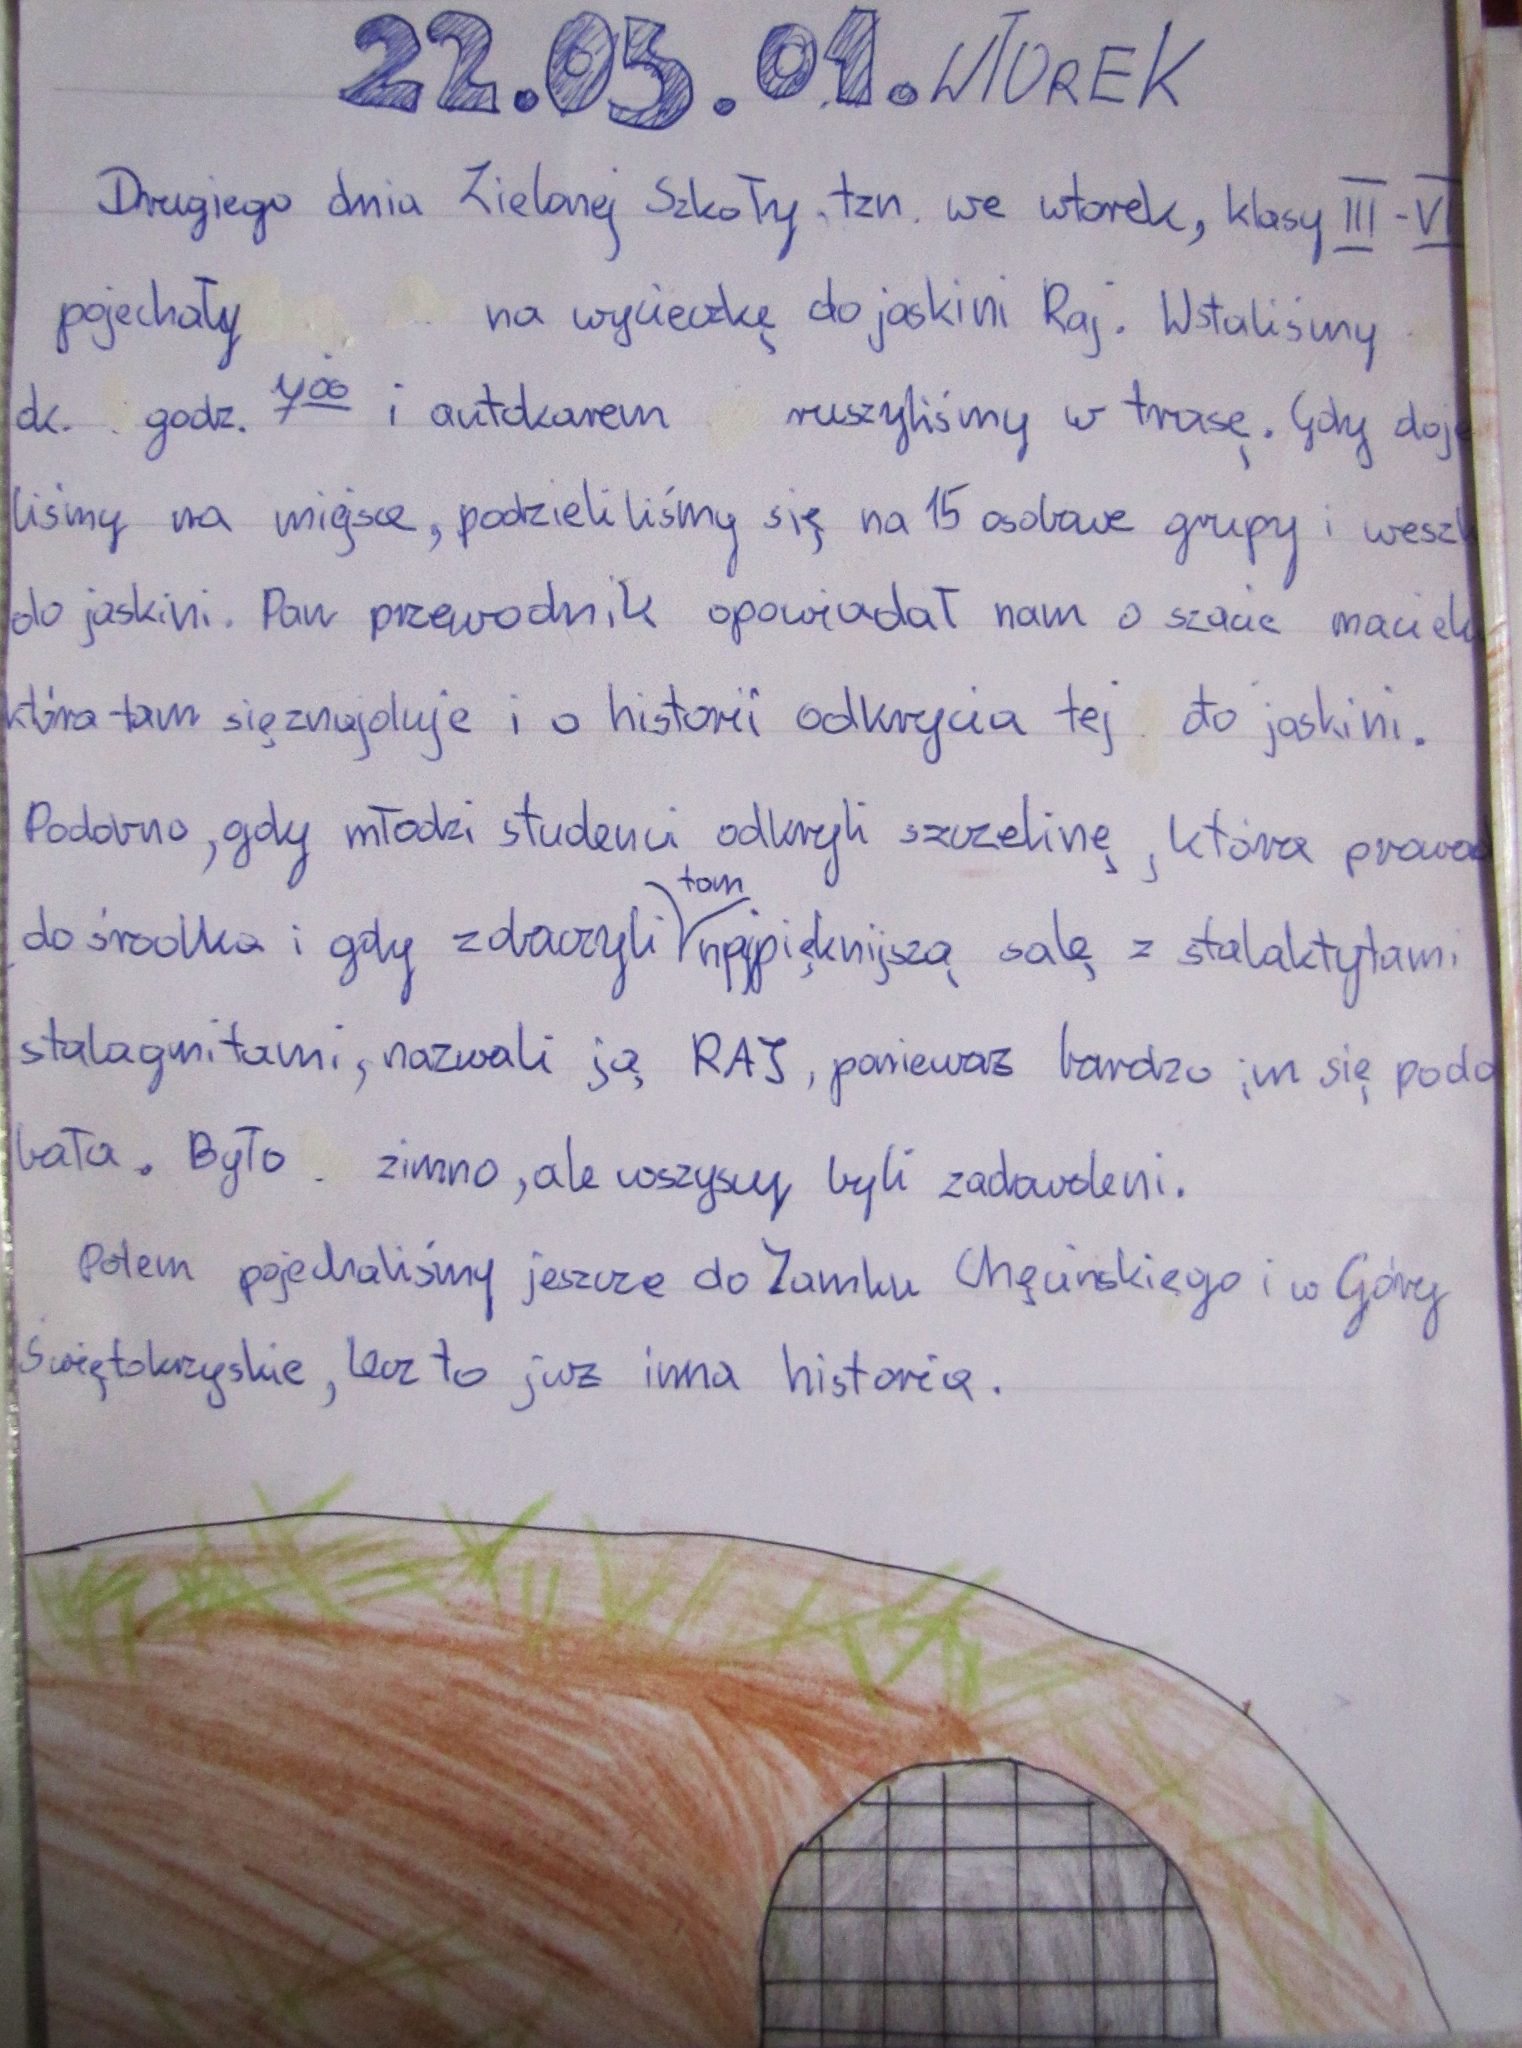 22.05.01. WTOREK
Drugiego dnia Zielonej Szkoły, tzn. we wtorek, klasy III-VI
pojechały na wycieczkę do jaskini Raj. Wstaliśmy
ok. godz. 7 00 i autokarem ruszyliśmy w trasę. Gdy doje
liśmy na miejsce, podzieliliśmy się na 15 osobowe grupy i weszl
do jaskini. Pan przewodnik opowiadał nam o szacie naciek
która tam się znajduje i o historii odkrycia tej to jaskini.
Podobno, gdy młodzi studenci odkryli szczelinę, która prowad
do środka i gdy zobaczyli tam najpięknijszą salę z stalaktytami
stalagmitami, nazwali ją RAJ, poniewaz bardzo im się podo
bała. Było zimno, ale wszyscy byli zadowoleni.
Potem pojechaliśmy jeszcze do Zamku Chęcińskiego i w Góry
Świętokrzyskie, lecz to juz inna historia.